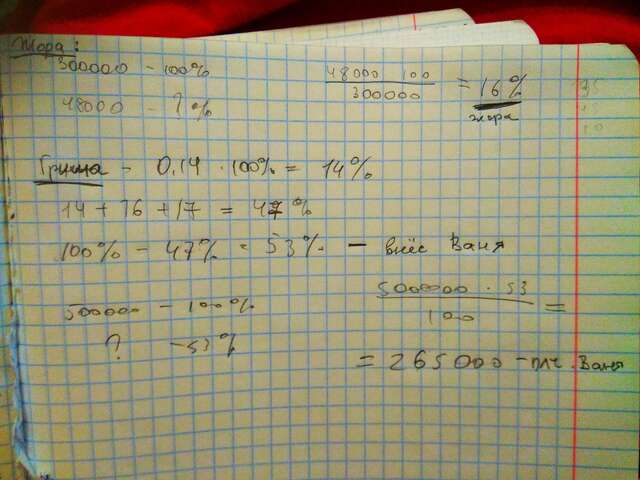 Жора:
300000 - 100%
48000 - ? %
48000 100
300000
= 16%
жора
Гриша - 0,14 · 100% = 14%
14 + 16 + 17 = 47%
100% - 47% = 53% - внёс Ваня
500000 - 100%
? - 53%
5000000 · 53
100
=
= 265000 - плч. Ваня